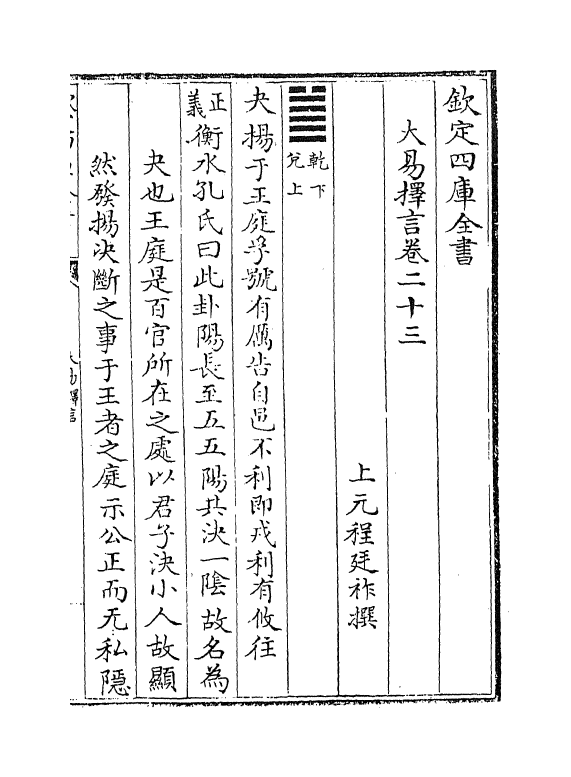 欽定四庫全書
大易擇言卷二十三
上元程廷祚撰
乾下
兌上
夬揚于王庭孚號有厲告自邑不利即戎利有攸往
正義衡水孔氏曰此卦陽長至五五陽共決一陰故名為
夬也王庭是百官所在之處以君子決小人故顯
然發揚決斷之事于王者之庭示公正而无私隱
大易擇言